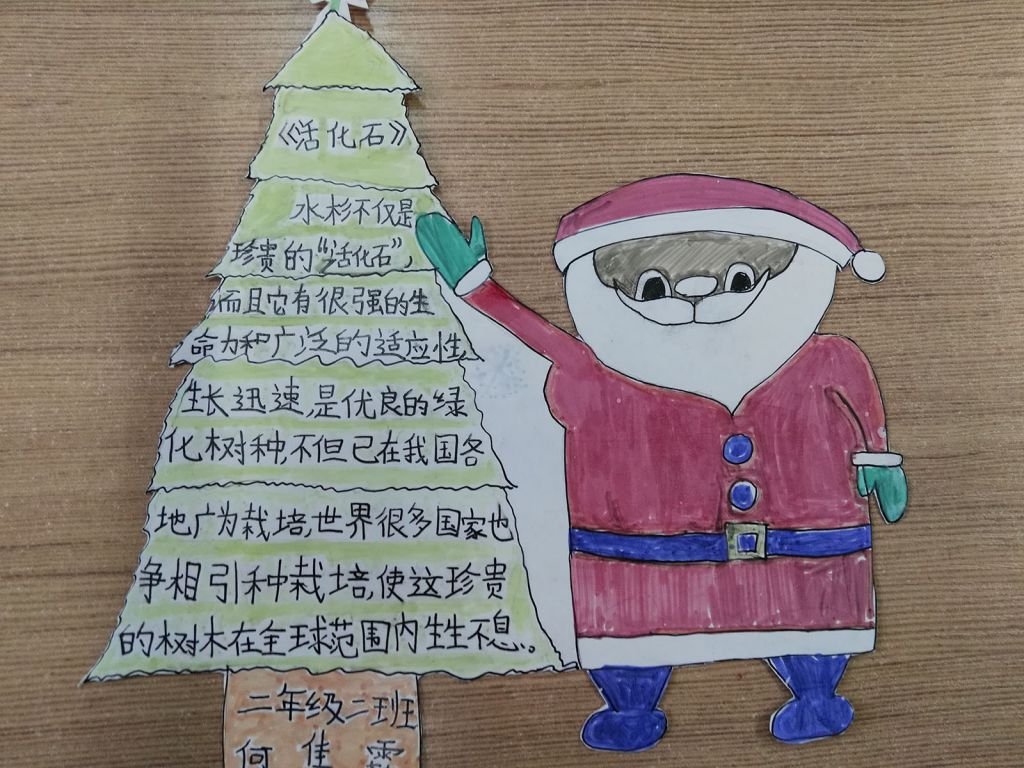 《活化石》
水杉不仅是
珍贵的“活化石”,
而且它有很强的生
命力和广泛的适应性,
生长迅速,是优良的绿
化树种不但已在我国各
地广为栽培,世界很多国家也
争相引种栽培,使这珍贵
的树木在全球范围内生生不息。
二年级二班
何佳